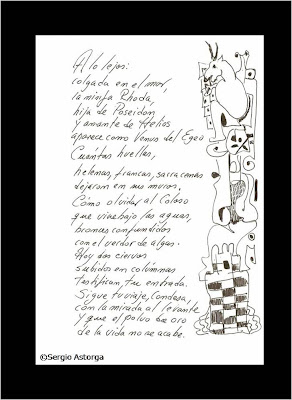 A lo lejos:
colgada en el mar,
la ninfa Rhoda,
hija de Poseidón
y amante de Helios
aparece como Venus del Egeo
Cuántas huellas,
helenas, francas, sarracenas
dejaron en sus muros,
Cómo olvidar al Coloso
que vive bajo las aguas,
bronces confundidos
con el verdor de algas.
Hoy dos ciervos
subidos en columnas
testifican, tu entrada.
Sigue tu viaje, Condesa,
con la mirada al levante
y que el polvo de oro
de la vida no se acabe.
©Sergio Astorga